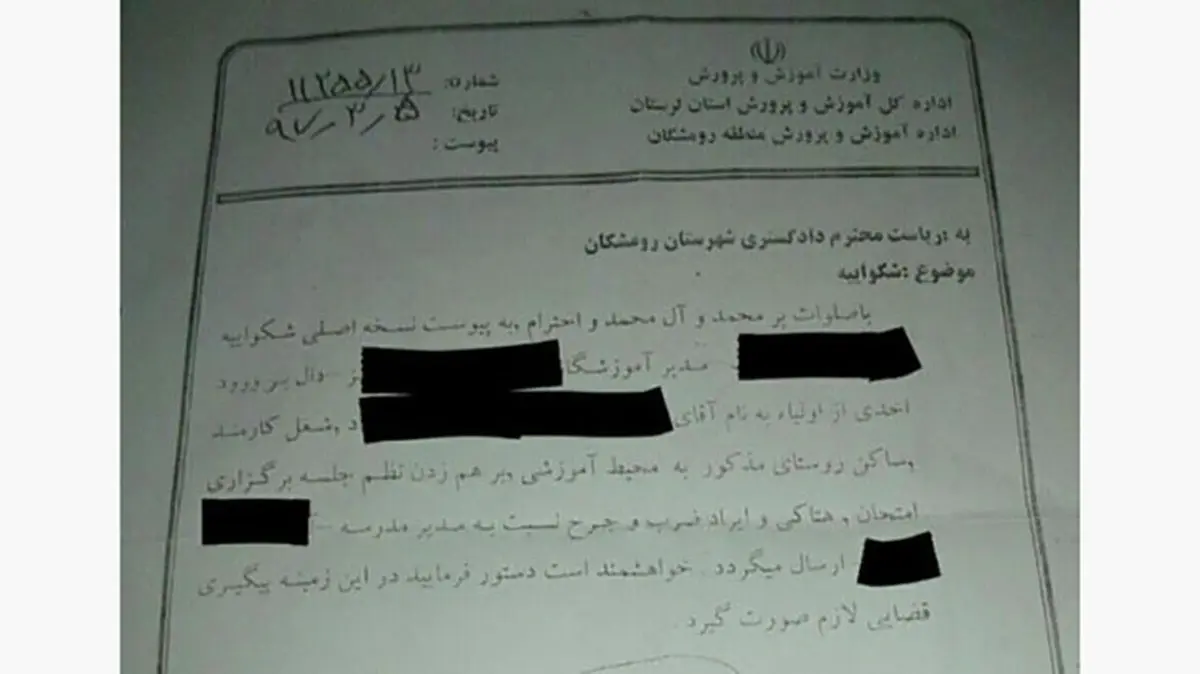 وزارت آموزش و پرورش
اداره کل آموزش و پرورش استان لرستان
اداره آموزش و پرورش منطقه رومشکان
شماره: ۱۱۲۵۵/۱۳
تاریخ: ۹۷/۳/۵
پیوست:
به :ریاست محترم دادگستری شهرستان رومشکان
موضوع :شکواییه
باصلوات بر محمد و آل محمد و احترام ,به پیوست نسخه اصلی شکواییه
مدیر آموزشگا ز - دال بر ورود
احدی از اولیاء به نام آقای د ,شغل کارمند
,ساکن روستای مذکور به محیط آموزشی ,بر هم زدن نظم جلسه برگزاری
امتحان , هتاکی و ایراد ضرب و جرح نسبت به مدیر مدرسه -
ارسال میگردد . خواهشمند است دستور فرمایید در این زمینه پیگیری
قضایی لازم صورت گیرد .